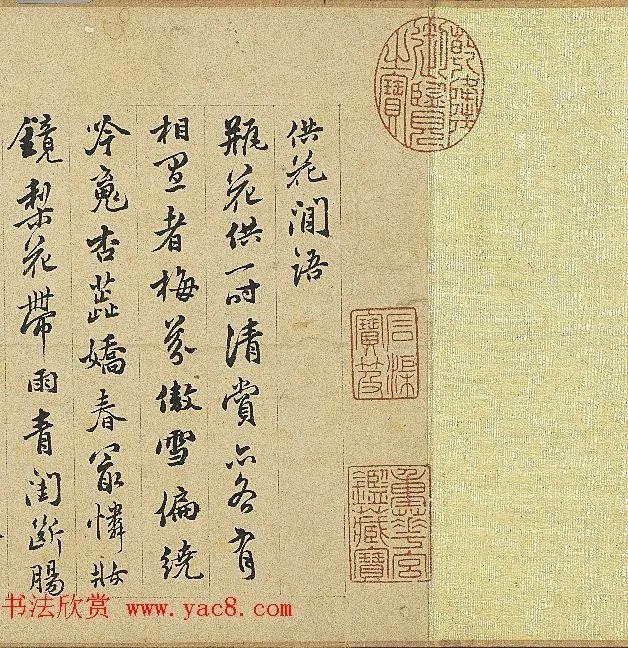 乾隆
御覽
之寶
石渠
寶笈
重華宮
鑑藏寶
供花閒語
瓶花供一时清賞亦各有
相宜者梅芬傲雪偏繞
吟魂杏蕊嬌春最憐妝
鏡梨花帶雨青閨断腸
书法欣赏 www.yac8.com